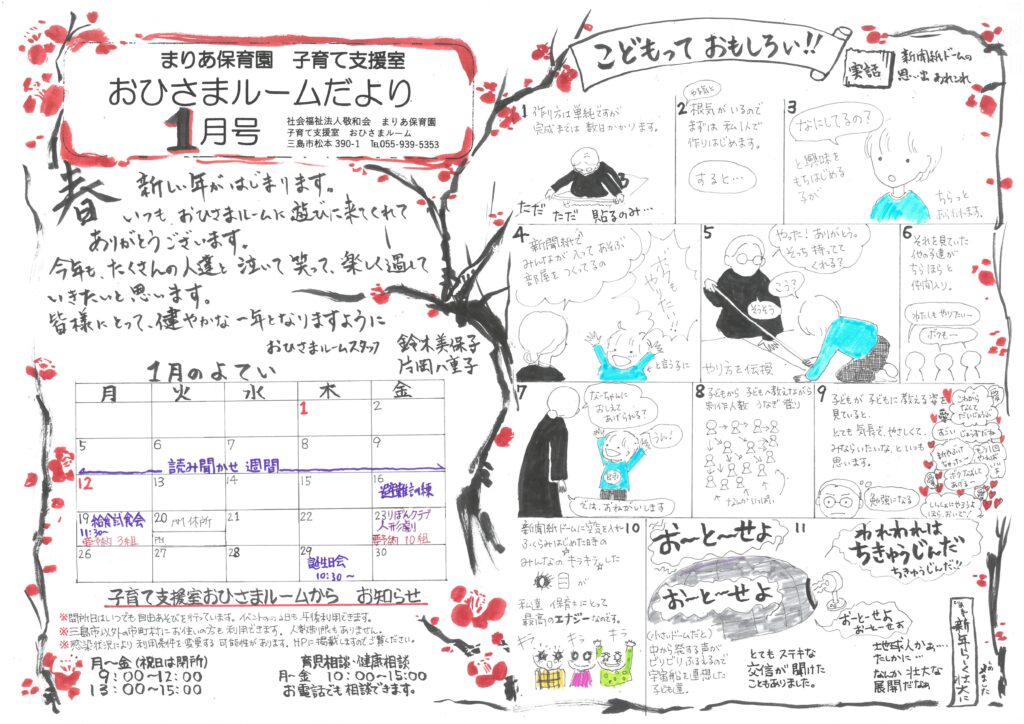 まりあ保育園 子育て支援室
おひさまルームだより
1月号
社会福祉法人敬和会 まりあ保育園
子育て支援室 おひさまルーム
三島市松本390-1 ℡055-939-5353
春
新しい年がはじまります。
いつも、おひさまルームに遊びに来てくれて
ありがとうございます。
今年も、たくさんの人達と泣いて笑って、楽しく過して
いきたいと思います。
皆様にとって、健やかな一年となりますように
おひさまルームスタッフ 鈴木美保子
片岡八重子
1月のよてい
月 火 水 木 金
1 2
5 6 7 8 9
読み聞かせ週間
12 13 14 15 16
避難訓練
19 給食試食会
11:30~
要予約 3組
20 PM 休所
PM
21 22
23 りぼんクラブ
人形劇
要予約 10組
26 27 28 29 30
誕生日会
10:30~
子育て支援室おひさまルームから お知らせ
※開所日はいつでも自由あそびを行っています。イベントの日も午後利用できます。
※三島市以外の市町村にお住いの方も利用できます。人数制限もありません。
※感染状況により利用条件を変更する可能性があります。HPに掲載しますのでご覧ください。
月~金(祝日は閉所)
9:00~12:00
13:00~15:00
育児相談・健康相談
月~金 10:00~15:00
お電話でも相談できます。
こどもって おもしろい!!
実話
新聞紙ドームの
思い出 あれこれ
1
作り方は単純ですが
完成までは数日かかります。
ただ ただ 貼るのみ…
2
やる気と
根気がいるので
まずは 私1人で
作りはじめます。
すると…
3
なにしてるの?
と興味を
もちはじめる
子が
ちらっと
あらわれます。
4
新聞紙で
みんなが入ってあそぶ
部屋をつくってるの
やりたい!!
と言う子に
5
やった!ありがとう。
そっち持ってて
くれる?
こう?
そうそう
やり方を伝授
6
それを見ていた
他の子達が
ちらほらと
仲間入り。
わたしもやりたい~
ボクも~
7
な~ちゃんに
おしえて
あげられる?
うん!
では、おねがいします
8
子どもから 子どもへ教えながら
制作人数 うなぎ登り
なんかいっぱい
9
子どもが 子どもに教える姿を
見ていると、
とても気長で、やさしくて、
みならいたいな、といつも
思います。
勉強になる
これから
なんて
だいじょうぶ
すごい じょうずだね
いっしょにやろうよ
ほら、おいで!
10
新聞紙ドームに空気を入れ
ふくらみはじめた時の
みんなの キラキラした
目が
私達 保育士にとって
最高のエナジーなのです。
キラ キラ キラ
11
お~と~せよ
お~と~せよ
われわれは
ちきゅうじんだ
ちきゅうじんだ!!
(小さいドームだと)
中から発する声が
ビリビリふるえるので
宇宙船を連想した
子ども達。
とても ステキな
交信が聞けた
こともありました。
お~とせよ
お~と~せよ
地球人かぁ…
たしかに…
なんか 壮大な
展開だなぁ
新年らしく壮大に